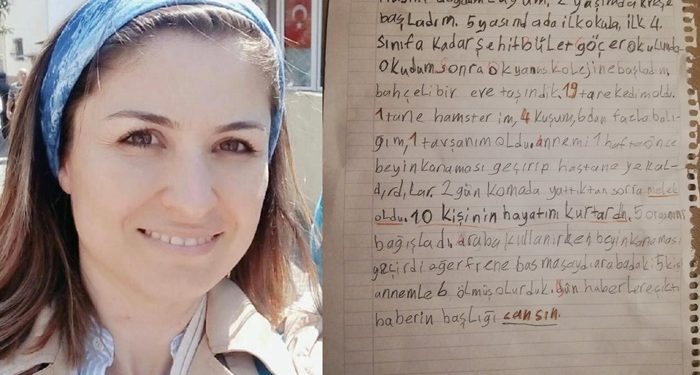 2 yaşında kreşe
başladım. 5 yaşında da ilkokula, ilk 4.
Sınıfa kadar şehit bület göçer okulunda
okudum sonra okyanus kolejine başladım
bahçeli bir eve taşındık. 19 tane kedim oldu.
1 tane hamsterim, 4 kuşum, 6 dan fazla balı-
ğım, 1 tavşanım oldu. annemi 1 hafta önce
beyin kanaması geçirip hastaneye kal-
dırdılar. 2 gün komada yattıktan sorra melek
oldu. 10 kişinin hayatını kurtardı. 5 organını
bağışladı. araba kullanırken beyin kanaması
geçirdi eğer frene basmasaydı arabadaki 5 kişi
annemle 6 ölmüş olurduk. haberlere çıktı
haberin başlığı cansın.